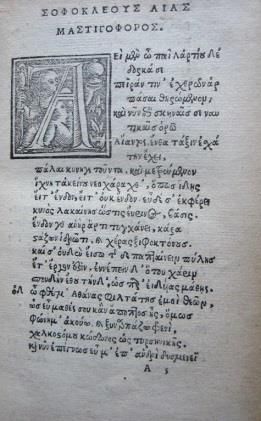 ΣΟΦΟΚΛΕΟΥΣ ΑΙΑΣ
ΜΑΣΤΙΓΟΦΟΡΟΣ.
Α Εὶ μὲν ὦ παῖ Λαρτίου δέ
δορκά σε
πεῖράν τιν' ἐχθρῶν ἁρ
πάσαι θηρώμενον,
καὶ νῦν ἐπὶ σκηναῖς σε ναυ
τικαῖς ὁρῶ
Αἴαντος, ἔνθα τάξιν ἐσχά
την ἔχει,
πάλαι κυνηγετοῦντα, καὶ μετρούμενον
ἴχνη τὰ κείνου νεοχάραχθ', ὅπως ἴδης
εἴτ' ἔνδον, εἴτ' οὐκ ἔνδον. εὖ δέ σ' ἐκφέρει
κυνὸς λακαίνης ὥς τις εὔρινος βάσις.
ἔνδον γὰρ ἁνὴρ ἄρτι τυγχάνει, κάρα
στάζων ἱδρῶτι, καὶ χέρας ξιφοκτόνους.
καί σ' οὐδὲν εἴσω τῆσδε παπταίνειν πύλης
ἔτ' ἔργον ἐστὶν, ἐννέπειν δ' ὅτου χάριν
σπουδὴν ἔθου τήνδ', ὡς παρ' εἰδυίας μάθης.
ΟΔ. ὦ φθέγμ' Ἀθάνας φιλτάτης ἐμοὶ θεῶν,
ὡς εὐμαθές σου κἂν ἄποπτος ᾖς, ὅμως
φώνημ' ἀκούω, καὶ ξυναρπάζω φρενὶ,
χαλκοστόμου κώδωνος ὡς τυρσηνικῆς.
καὶ νῦν ἐπέγνως εὖ μ' ἐπ' ἀνδρὶ δυσμενεῖ